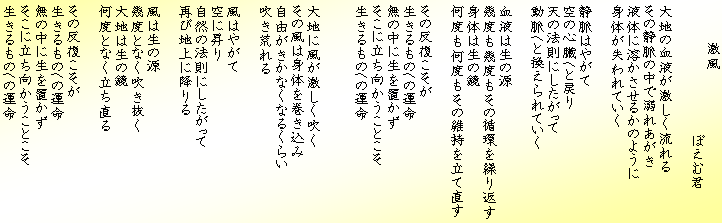 激風
ぽえむ君
大地の血液が激しく流れる
その静脈の中で溺れあがき
液体に溶かさせるかのように
身体が失われていく
静脈はやがて
空の心臓へと戻り
天の法則にしたがって
動脈へと換えられていく
血液は生の源
幾度も幾度もその循環を繰り返す
身体は生の鏡
何度も何度もその維持を立て直す
その反復こそが
生きるものへの運命
無の中に生を置かず
そこに立ち向かうことこそ
生きるものへの運命
大地に風が激しく吹く
その風は身体を巻き込み
自由がきかなくなるくらい
吹き荒れる
風はやがて
空に昇り
自然の法則にしたがって
再び地上に降りる
風は生の源
幾度となく吹き抜く
大地は生の鏡
何度となく立ち直る
その反復こそが
生きるものへの運命
無の中に生を置かず
そこに立ち向かうことこそ
生きるものへの運命